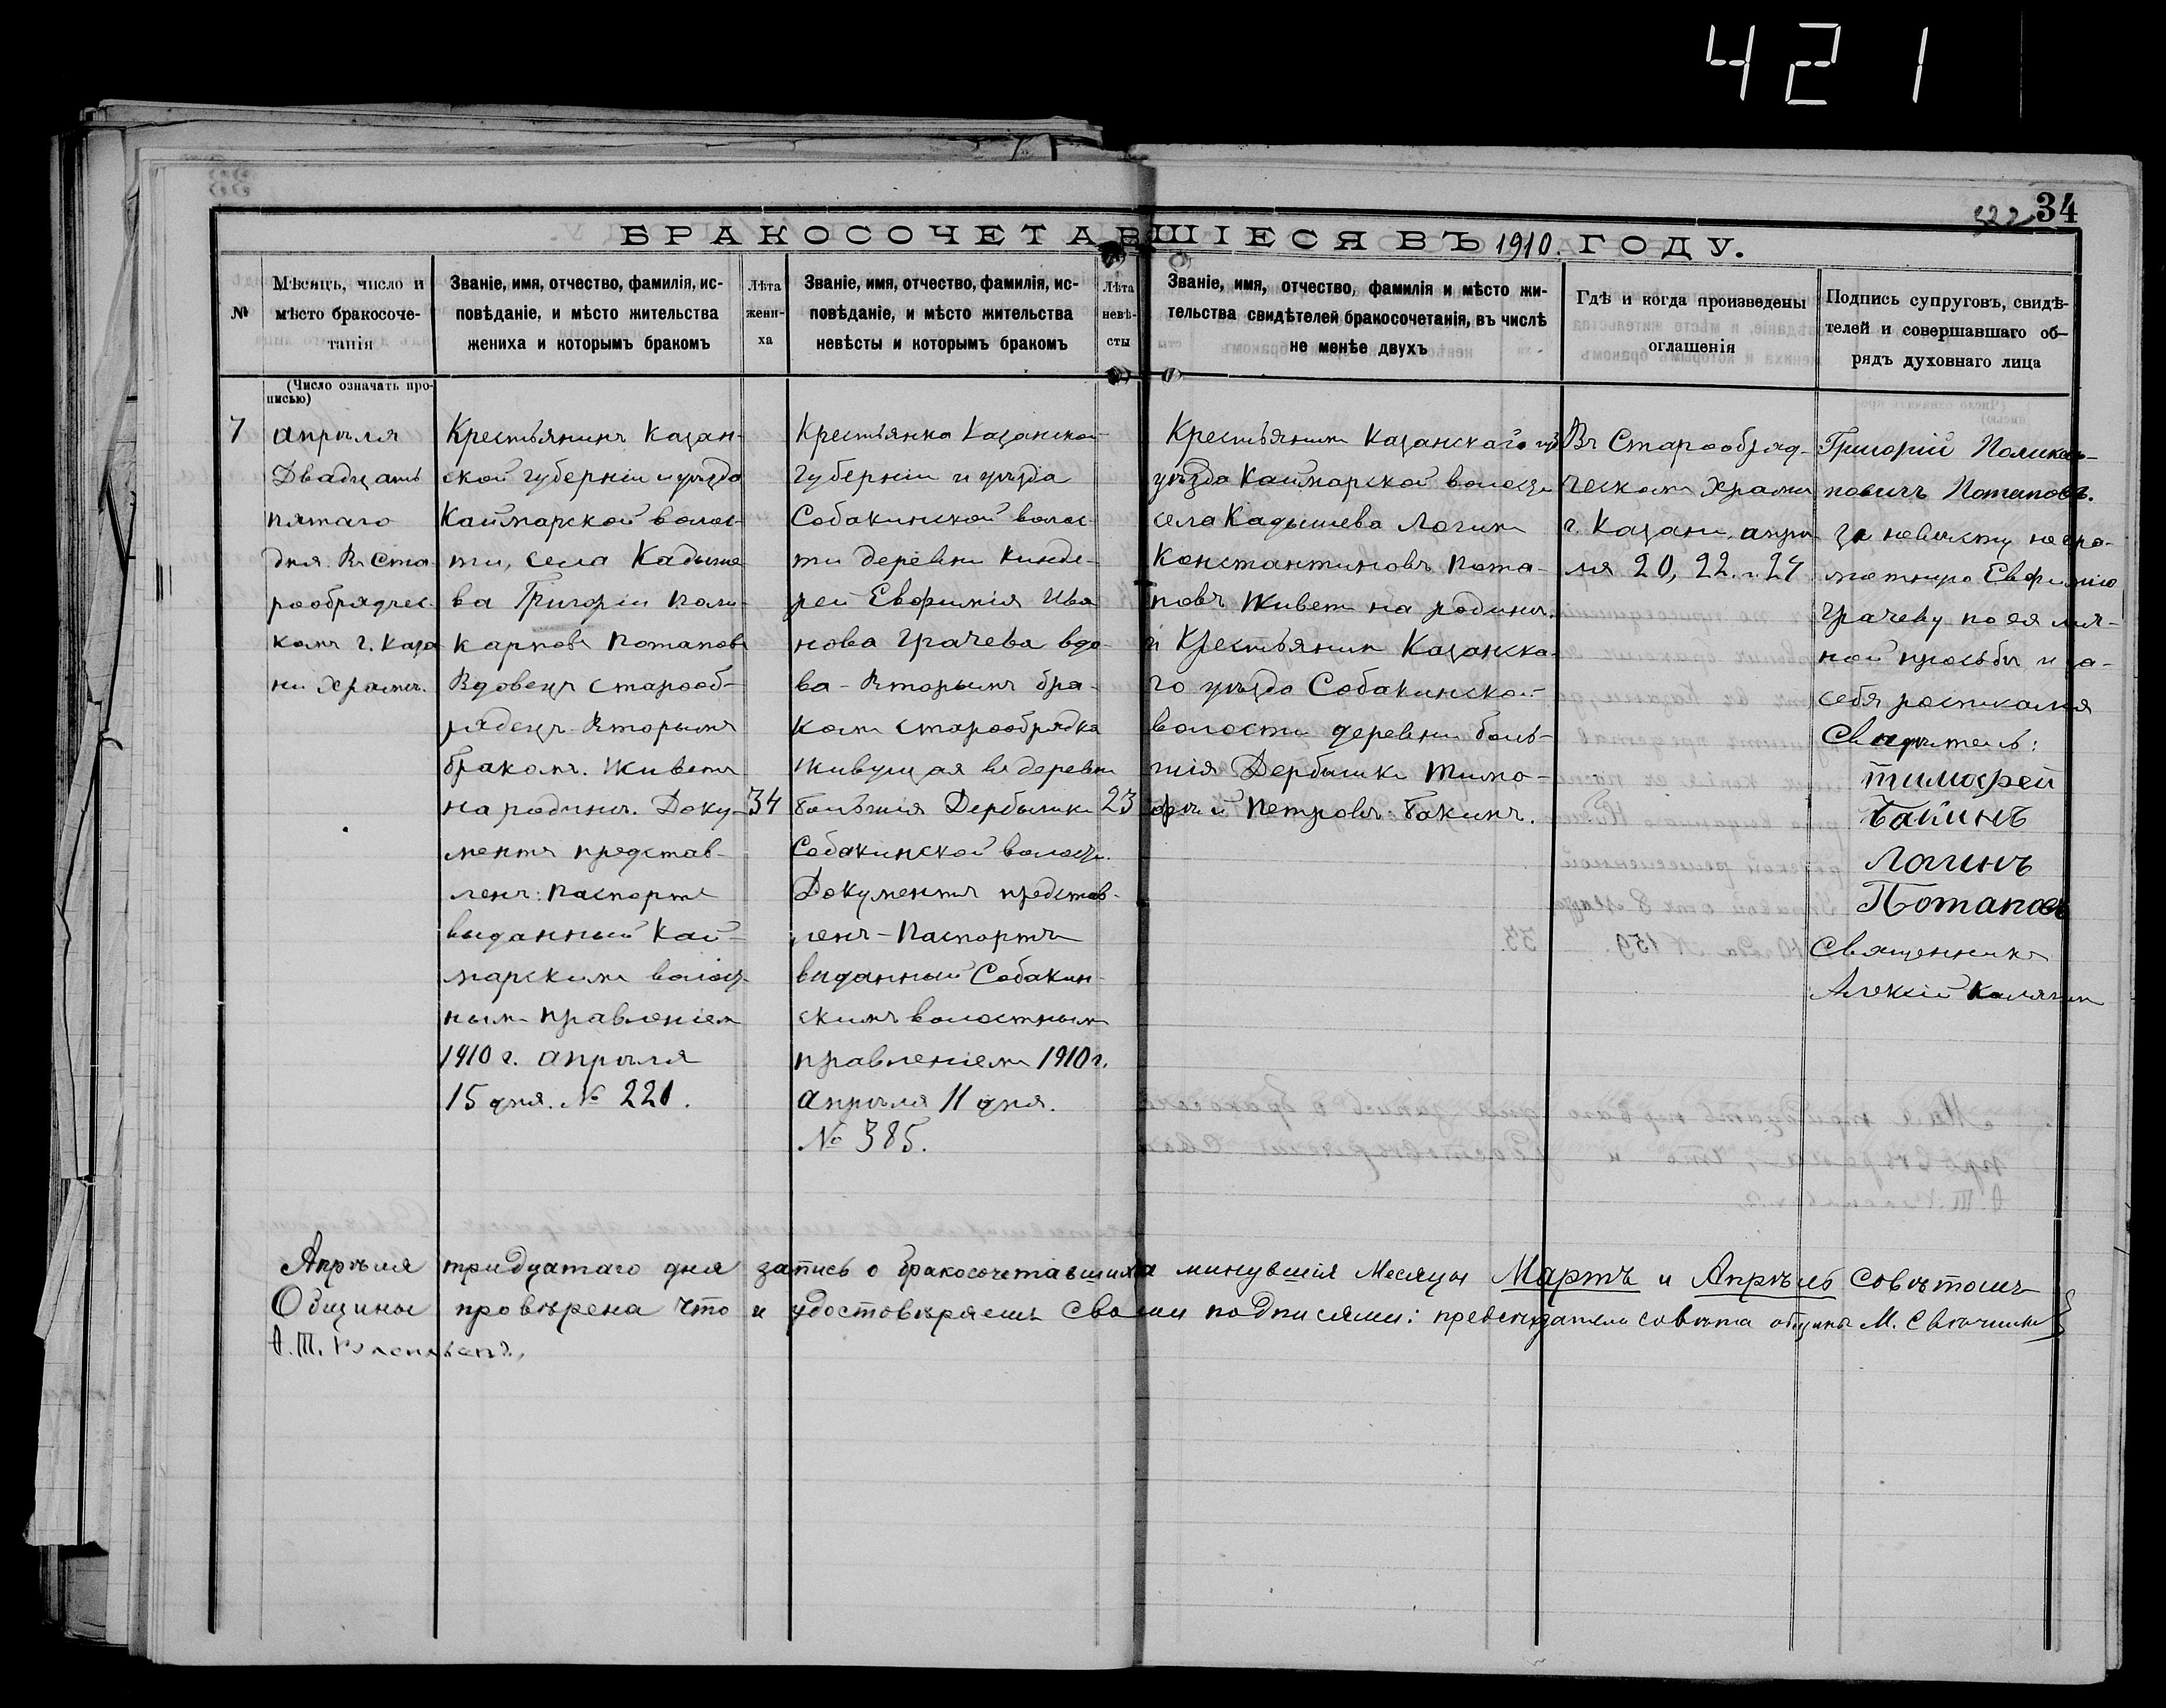 421
34
322
БРАКОСОЧЕТАВШІЕСЯ ВЪ 1910. ГОДУ.
№
Мѣсяцъ, число и
мѣсто бракосоче-
танія
Званіе, имя, отчество, фамилія, ис-
повѣданіе, и мѣсто жительства
жениха и которымъ бракомъ
Лѣта
жени-
ха
Званіе, имя, отчество, фамилія, ис-
повѣданіе, и мѣсто жительства
невѣсты и которымъ бракомъ
Лѣта
невѣ-
сты
Званіе, имя, отчество, фамилія и мѣсто жи-
тельства свидѣтелей бракосочетанія, въ числѣ
не менѣе двухъ
Гдѣ и когда произведены
оглашенія
Подпись супруговъ, свидѣ-
телей и совершавшаго об-
рядъ духовнаго лица
(Число означать про-
писью)
7
апрѣля
Двадцать
пятаго
дня. Въ Ста
рообрядчес-
комъ г. Каза
ни храмѣ.
Крестьянинъ Казан-
ской губерніи и уѣзда
Каймарской волос-
ти, села Кадыше
ва Григорій Поли-
карповъ Потаповъ
Вдовецъ старооб-
рядецъ Вторымъ
бракомъ. Живетъ
на родинѣ. Доку-
ментъ представ-
ленъ: Паспортъ
выданный Кай-
марскимъ волост-
нымъ правленіемъ
1910 г. апрѣля
15 дня. № 221.
34
Крестьянка Казанской
губерніи и уѣзда
Собакинской волос-
ти деревни Кинде-
рей Евфимія Ива
нова Грачева вдо-
ва - Вторымъ бра-
комъ старообрядка
Живущая въ деревни
большія Дербышки
Собакинской волости.
Документъ представ-
ленъ - Паспортъ
выданный Собакин-
скимъ волостнымъ
правленіемъ 1910 г.
апрѣля 11 дня.
№ 385.
23
Крестьянинъ Казанскаго
уѣзда Каймарской волости
села Кадышева Логинъ
Константиновъ Пота-
повъ Живетъ на родинѣ.
и Крестьянинъ Казанска-
го уѣзда Собакинской
волости деревни боль-
шія Дербышки Тимо-
фѣй Петровъ Бакинъ.
Въ Старообряд-
ческомъ Храмѣ
г. Казани, апрѣ-
ля 20, 22. и 24
Григорій Поликар-
повичъ Потаповъ.
За невѣсту негра-
мотную Евфимію
Грачеву по ея лич-
ной просьбѣ и за-
себя росписался
Свидѣтель:
Тимофей
Бакинъ
Логинъ
Потаповъ
Священникъ
Алексій Калягинъ
Апрѣля тридцатаго дня запись о бракосочетавшихся минувшія Месяцы Мартъ и Апрѣль Совѣтомъ
Общины провѣрена что и удостовѣряемъ своими подписями: председатель совѣта общины М. Свѣчниковъ